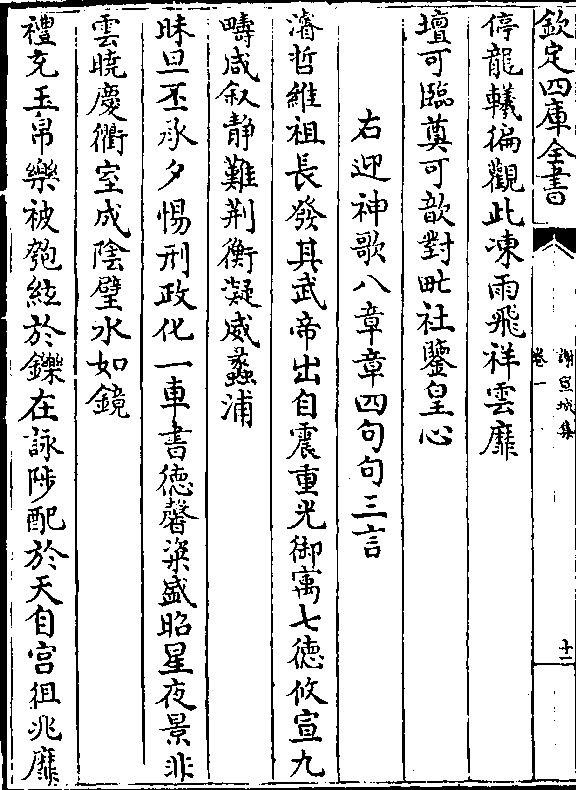 欽定四庫全書
謝宣城集
卷一
十二
停龍轙徧觀此凍雨飛祥雲靡
壇可臨奠可歆對甿社鑒皇心
右迎神歌八章章四句句三言
濬哲維祖長發其武帝出自震重光御㝢七德攸宣九
疇咸叙静難荆衡凝威蠡浦
昧旦丕承夕惕刑政化一車書德馨粢盛昭星夜景非
雲曉慶衢室成陰璧水如鏡
禮充玉帛樂被匏絃於鑠在詠陟配於天自宫徂兆靡